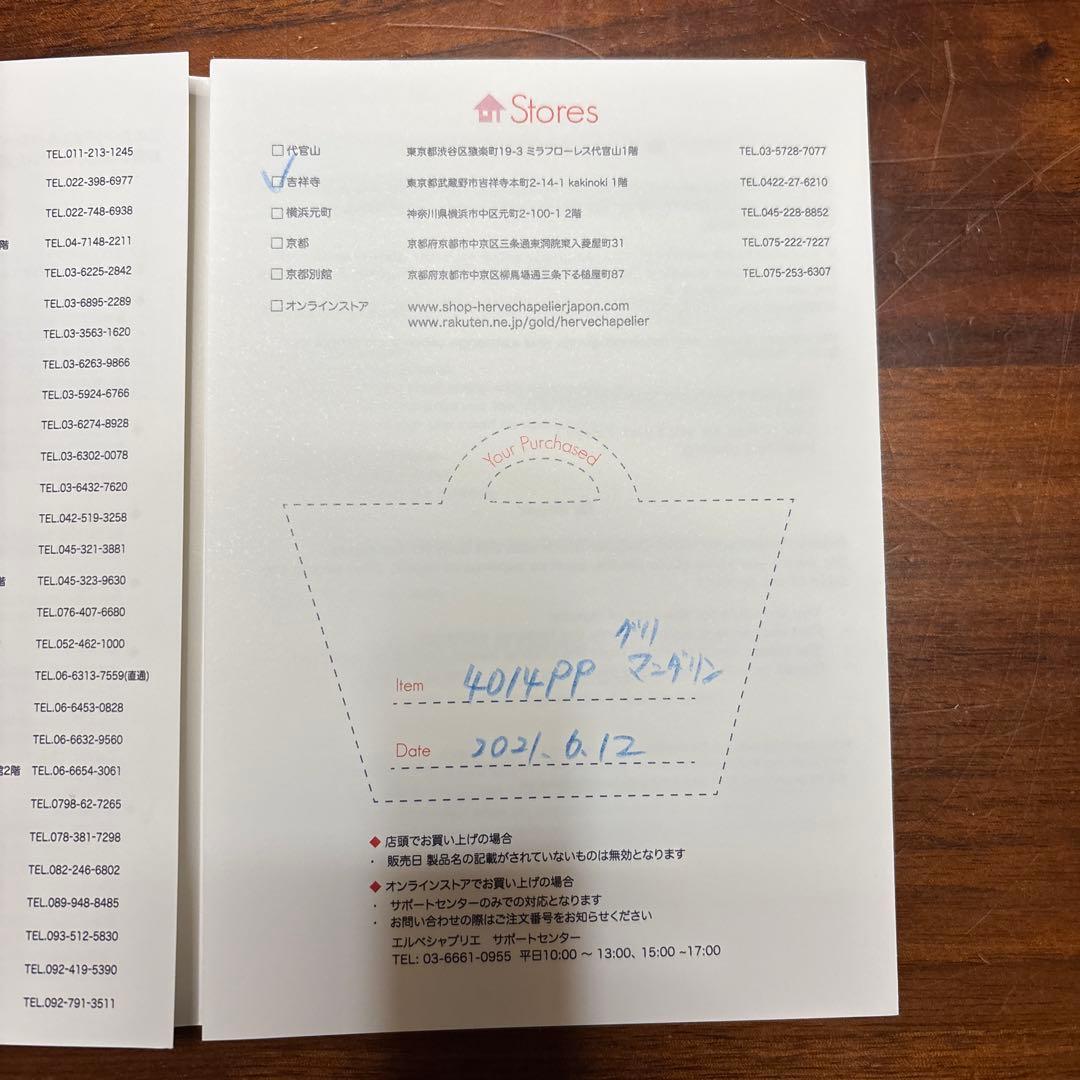 TEL.011-213-1245
TEL.022-398-6977
TEL.022-748-6938
階 TEL.04-7148-2211
TEL.03-6225-2842
TEL.03-6895-2289
TEL.03-3563-1620
TEL.03-6263-9866
TEL.03-5924-6766
TEL.03-6274-8928
TEL.03-6302-0078
TEL.03-6432-7620
TEL.042-519-3258
TEL.045-321-3881
階 TEL.045-323-9630
TEL.076-407-6680
TEL.052-462-1000
TEL.06-6313-7559(直通)
TEL.06-6453-0828
TEL.06-6632-9560
館2階 TEL.06-6654-3061
TEL.0798-62-7265
TEL.078-381-7298
TEL.082-246-6802
TEL.089-948-8485
TEL.093-512-5830
TEL.092-419-5390
TEL.092-791-3511
Stores
代官山 東京都渋谷区猿楽町19-3 ミラフローレス代官山1階 TEL.03-5728-7077
吉祥寺 東京都武蔵野市吉祥寺本町2-14-1 kakinoki 1階 TEL.0422-27-6210
横浜元町 神奈川県横浜市中区元町2-100-1 2階 TEL.045-228-8852
京都 京都府京都市中京区三条通東洞院東入菱屋町31 TEL.075-222-7227
京都別館 京都府京都市中京区柳馬場通三条下る槌屋町87 TEL.075-253-6307
オンラインストア www.shop-hervechapelierjapon.com
www.rakuten.ne.jp/gold/hervechapelier
Your Purchased
グリ
Item 4014PP マンダリン
Date 2021.6.12
◆ 店頭でお買い上げの場合
・ 販売日 製品名の記載がされていないものは無効となります
◆ オンラインストアでお買い上げの場合
・ サポートセンターのみでの対応となります
・ お問い合わせの際はご注文番号をお知らせください
エルベシャプリエ サポートセンター
TEL: 03-6661-0955 平日10:00 ～ 13:00、15:00 ~17:00